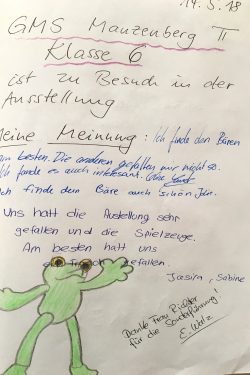 14.5.18
GMS Manzenberg TT
Klasse 6
ist zu Besuch in der
Ausstellung
Meine Meinung: Ich finde den Bären
am besten. Die anderen gefallen mir nicht so.
Ich finde es auch interesant.
Ich finde dem Bäre auch schön
Uns hatt die Austellung sehr
gefallen und die Spielzeuge.
Am besten hatt uns
Frosch gefallen.
Jasira, Sabine
Danke Frau Richter
für die Sonderführung!
E. Walz